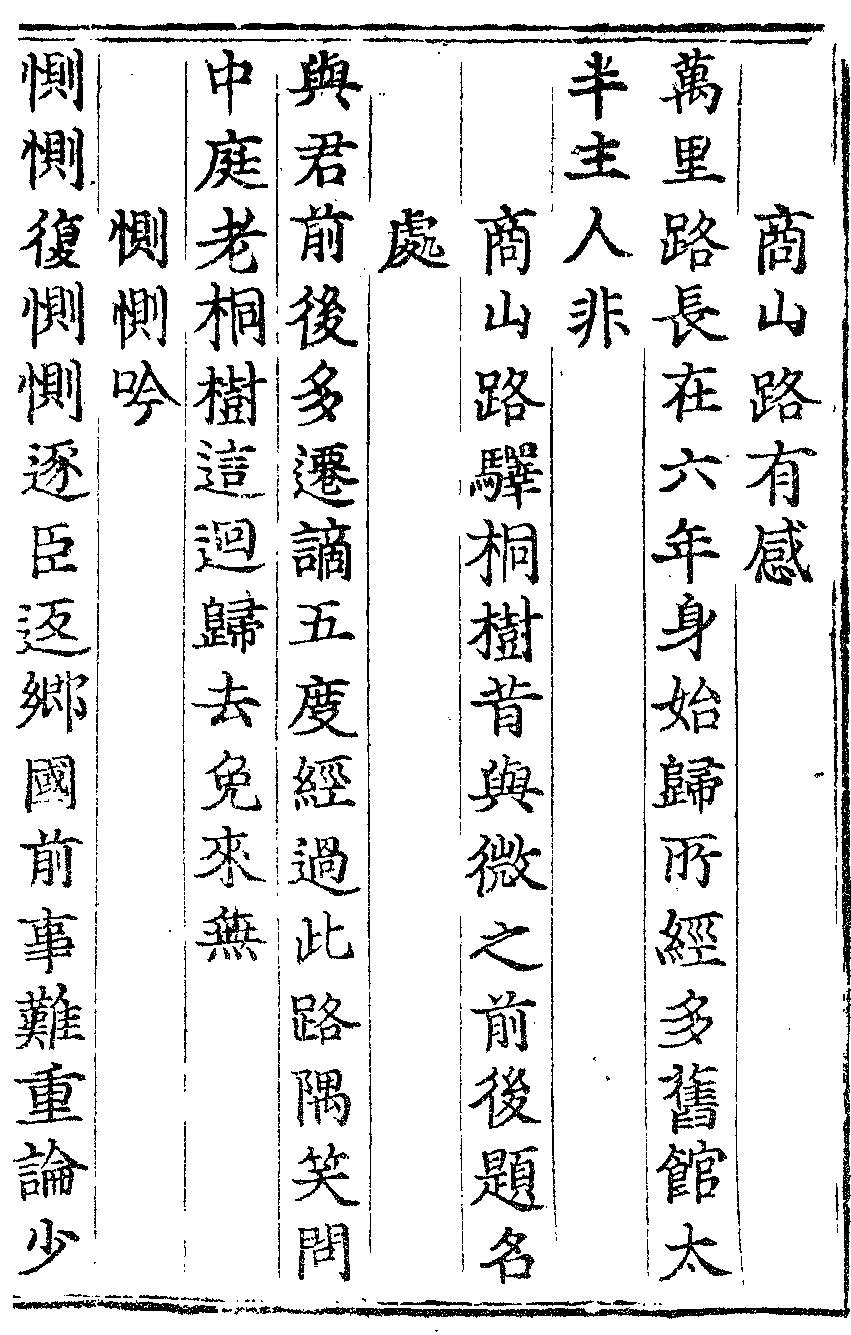 商山路有感
萬里路長在六年身始歸所經多舊館太
半主人非
商山路驛桐樹昔與微之前後題名
處
與君前後多遷謫五度經過此路隅笑問
中庭老桐樹這迴歸去免來無
惻惻吟
惻惻復惻惻逐臣返鄉國前事難重論少